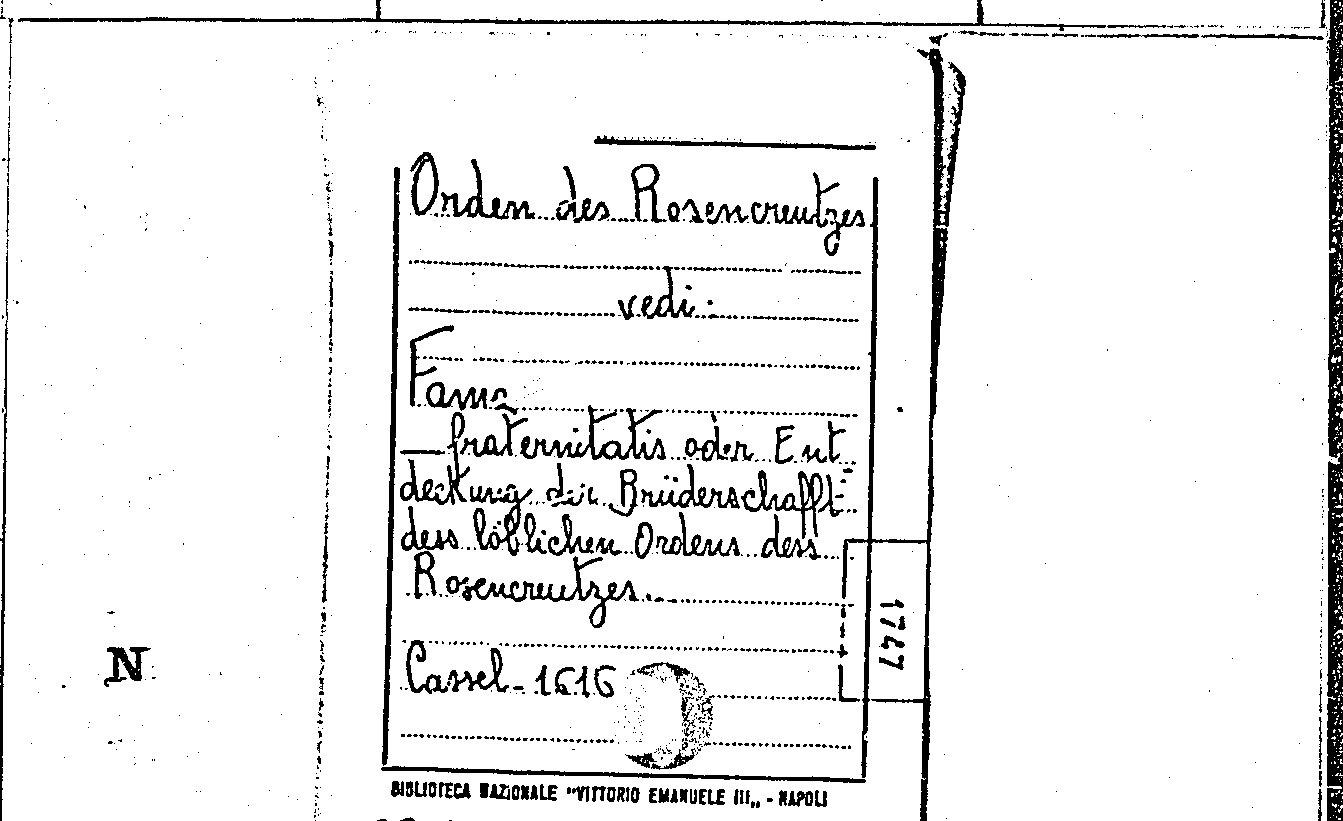 Orden des Rosencreutzes
vedi:
Fama
fraternitatis oder Ent-
deckung der Brüderschafft
dess löblichen Ordens dess
Rosencreutzes...
Cassel - 1616
1747
N
BIBLIOTECA NAZIONALE "VITTORIO EMANUELE III„ - NAPOLI